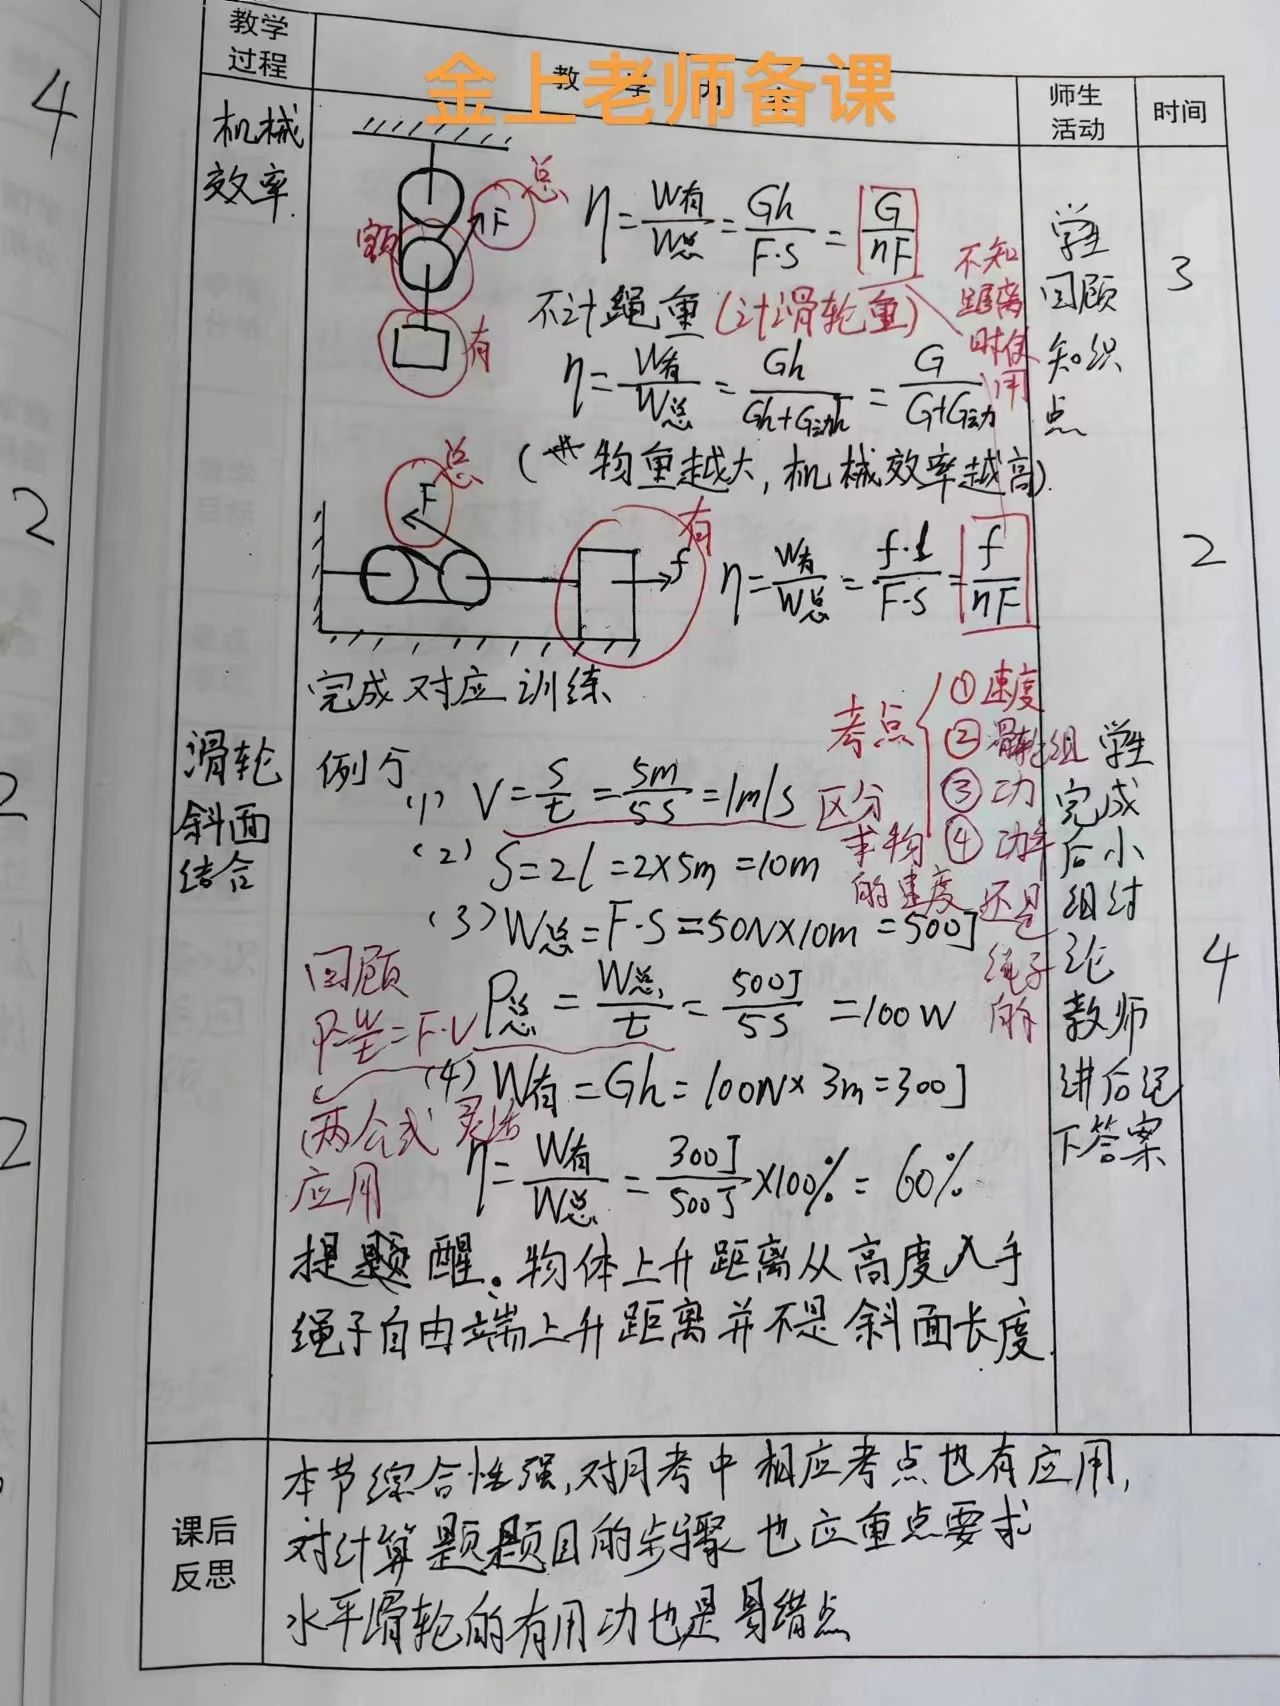 金上老师备课
教学
过程
教 学 内 容
师生
活动
时间
机械
效率.
总
F
额
有
η=W有/W总=Gh/F·S=G/nF
不计绳重(计滑轮重)
不知
距离
时使
用
η=W有/W总=Gh/Gh+G动h=G/G+G动
(物重越大,机械效率越高).
学生
回顾
知识
点
3
总
F
有
f
η=W有/W总=f·l/F·S=f/nF
2
完成对应训练
滑轮
斜面
结合
考点
①速度
②滑轮组
③功
④功率
例5
(1) V=S/t=5m/5s=1m/s
区分
求物
的速度
还是
绳子
的
(2) S=2l=2×5m=10m
(3) W总=F·S=50N×10m=500J
P总=W总/t=500J/5s=100W
回顾
P=W/t=F·V
两公式灵活
应用
(4) W有=Gh=100N×3m=300J
η=W有/W总=300J/500J×100%=60%
学生
完成
后小
组讨
论
教师
讲后记
下答案
4
提醒。物体上升距离从高度入手
绳子自由端上升距离并不是斜面长度.
课后
反思
本节综合性强,对月考中相应考点也有应用,
对计算题题目的步骤也应重点要求
水平滑轮的有用功也是易错点
4
2
2
2